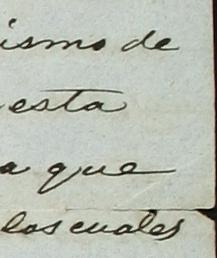 ismo de
esta
a que
los cuales